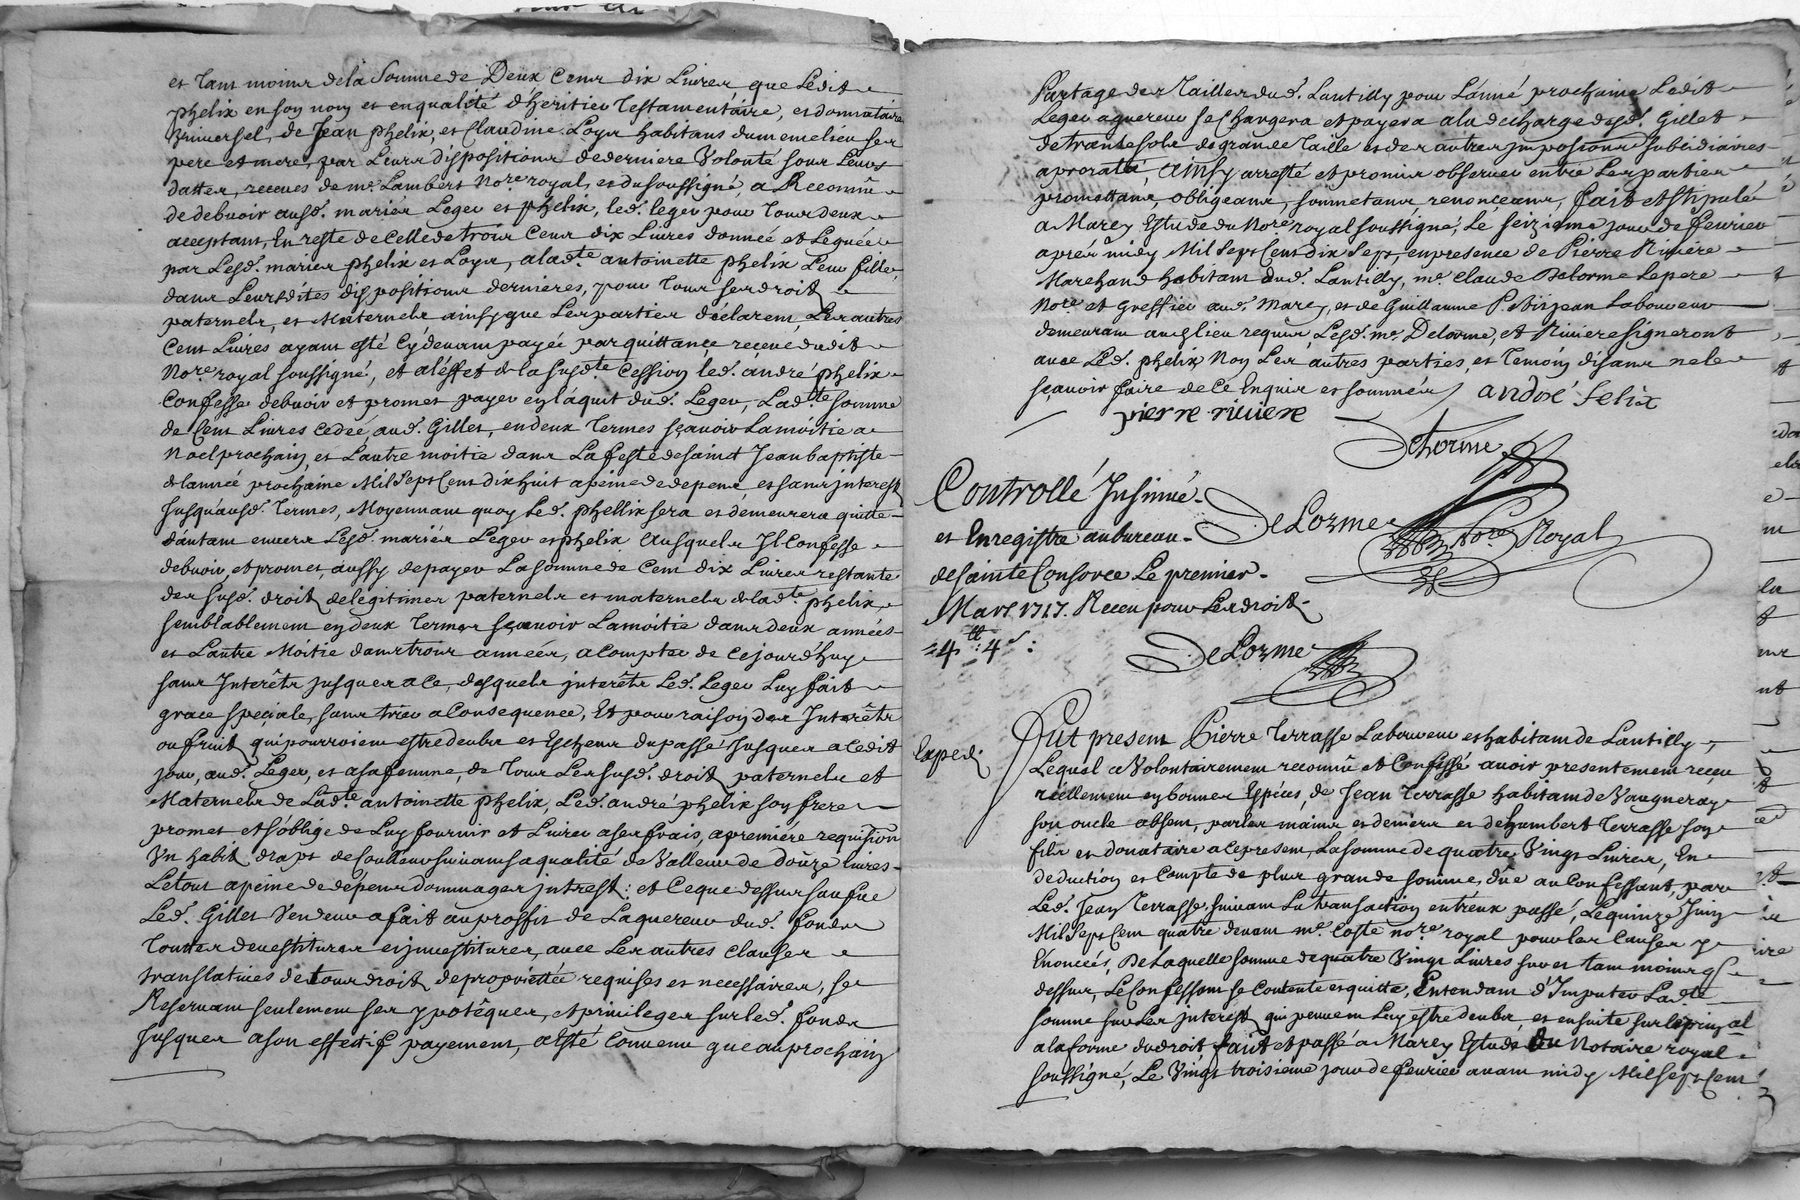 et tant moins de la Somme de Deux Cens dix Livres que Ledit
phelix en son nom et en qualité d'heritier Testamentaire, et donnataire
Vniversel, de Jean phelix, et Claudine Loyr habitans du meme lieu ses
pere et mere, par Leurs dispositions de derniere Volonté sous Leurs
dattes, receues de me. Lambert Nore. royal, et du soussigné, a Reconnu
de debuoir ausd. mariés Leger et phelix, led. leger pour Tous deux
aceptant, En reste de Celle de trois Cens dix Livres donnée et Leguée
par Lesd. maries phelix et Loyr, a lad.te antoinette phelix Leur fille,
dans Leursdites dispositions dernieres, pour Tous ses droits
paternels, et Maternels ainsy que Les parties déclarent, Les autres
Cent Livres ayant esté Cy devant payée par quittance receue dudit
Nore. royal soussigné, et a l'effet de la susd.te Cession led. andré phelix
Confesse debuoir et promet payer en l'aquit dud. Leger, Lad.te somme
de Cent Livres cedée, aud. Gillet, en deux Termes sçauoir La moitie a
Noel prochain, et Lautre moitie dans La feste de saint Jean baptiste
de lannée prochaine Mil Sept Cens dix huit a peine de depens et sans interest
Jusqu'ausd. Termes, Moyennant quoy Led. phellix sera et demeurera quitte
dautant envers Lesd. mariés Leger et phelix Ausquels Jl Confesse
debuoir, et promet, aussy de payer La somme de Cent dix Livres restante
des susd. droits de legitimes paternels et maternels de lad.te phelix
semblablement en deux Termes sçauoir La moitie dans deux années
et Lautre Moitie dans trois années, a Compter de Cejourd'huy
sans Interêts jusques a ce, desquels jnterêts Led. Leger Luy fait
grace speciale, sans tirer a Consequence, Et pour raison des Interêts
ou fruits qui pourroient estre deubs et Escheus du passé Jusques a Cedit
jour, aud. Leger, et a sa femme, de Tous Les susd. droits paternels et
Maternels de Lad.te antoinette phelix, Led. andré phelix son frere
promet et s'oblige de Luy fournir et Livrer a ses frais, a premiére requisition
Vn habit draps de Couleur suivant sa qualité de Valleur de doûze livres
Le tout a peine de dépens dommages jntrest: et Ce que dessus sauf que
Led. Gillet Vendeur a fait au proffit de Laquereur dud. fonds
Toutes devestitures et jnvestitures, avec Les autres clauses
translatiues de tous droits de proprietée requises et necessaires, se
Reservant seulement ses ypotêques, et privileges sur led. fonds
Jusques a son effectif payement, a esté Convenu que au prochain
Partage des Tailles dud. Lantilly pour L'anné prochaine Ledit
Leger aquereur se Chargera et payera a la decharge dud. Gillet
de trante sols de grande Taille et des autres jmpositions subsidiaires
a prorata, ainsy arresté et promis observer entre Les parties
promettans, obligeans, soumettans renonçeans, fait et stipulé
a Marcy Estude du Nore. royal soussigné, Le seizieme jour de feurier
aprés midy Mil Sept Cens dix Sept, en presence de Pierre Riuiére
Marchand habitant dud. Lantilly, me. Claude Delorme Le pere
Nore. et Greffier aud. Marcy, et de Guillaume Petitjean Laboureur
demeurant aud. lieu requis, Lesd. me. Delorme, et Riuiere signeront
avec Led. phelix Non Les autres parties, et Temoin disans ne le
sçauoir faire de Ce Enquis et sommés) andré felix
pierre riuiere
Delorme
Controllé Jnsinué
et Enregistré au bureau
de sainte Consorce Le premier
Mars 1717. Receu pour Les droits
=4tt : 4s :
DeLorme Nore. Royal
DeLorme
Exped.
Fut present Pierre Terrasse Laboureur et habitant de Lantilly,
Lequel a Volontairement reconnu et Confessé avoir presentement receu
réellement en bonnes Espéces, de Jean Terrasse habitant de Vaugneray
son oncle absent, par les mains et deniers de humbert Terrasse son
fils et donataire a ce present, La somme de quatre Vingt Livres, En
deduction et Compte de plus grande somme, dûe au Confessant, par
Led. Jean Terrasse, suivant La transaction entreux passé, Le quinze Juin
Mil Sept Cent quatre devant me. Coste nore. royal pour les Causes y
Enoncées, De Laquelle somme de quatre Vingt Livres sur et tant moins que
dessus, Le Confessant se Contente et quitte, Entendant d'Imputer Lad.te
somme sur Les jnterest qui peuvent Luy estre deubs, et ensuite sur le prinçal
a la forme du droit, fait et passé a Marcy Estude du Notaire royal
soussigné, Le Vingt troisieme jour de feurier avant midy Mil sept Cent